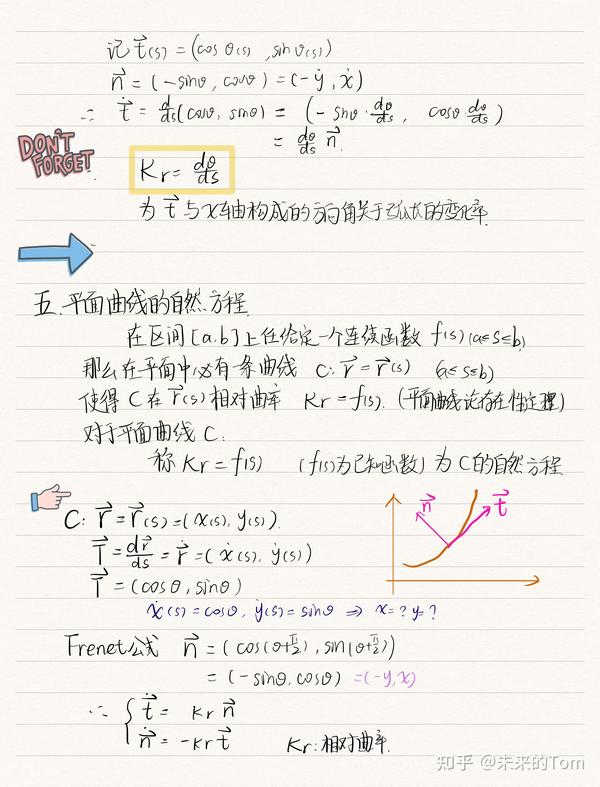 记 t⃗(s) = (cosθ(s), sinθ(s))
n⃗ = (-sinθ, cosθ) = (-ẏ, ẋ)
∴ ṫ⃗ = d/ds(cosθ, sinθ) = (-sinθ·dθ/ds, cosθ·dθ/ds)
= dθ/ds n⃗.
DON'T FORGET
Kr = dθ/ds
为 t⃗ 与x轴构成的方向角关于弧长的变化率.
五.平面曲线的自然方程.
在区间[a.b]上任给定一个连续函数 f(s)(a≤s≤b)
那么在平面中必有一条曲线 C: r⃗ = r⃗(s) (a≤s≤b)
使得 C 在 r⃗(s) 相对曲率 Kr = f(s). (平面曲线论存在性定理)
对于平面曲线 C.
称 Kr = f(s) (f(s)为已知函数) 为 C 的自然方程
C: r⃗ = r⃗(s) = (x(s), y(s)).
T⃗ = dr⃗/ds = ṙ⃗ = (ẋ(s), ẏ(s))
T⃗ = (cosθ, sinθ)
n⃗
t⃗
ẋ(s) = cosθ, ẏ(s) = sinθ ⇒ x=? y=?
Frenet公式 n⃗ = (cos(θ+π/2), sin(θ+π/2))
= (-sinθ, cosθ) = (-y, x)
∴ { ṫ⃗ = Kr n⃗
ṅ⃗ = -Kr t⃗ Kr:相对曲率.
知乎 @未来的Tom